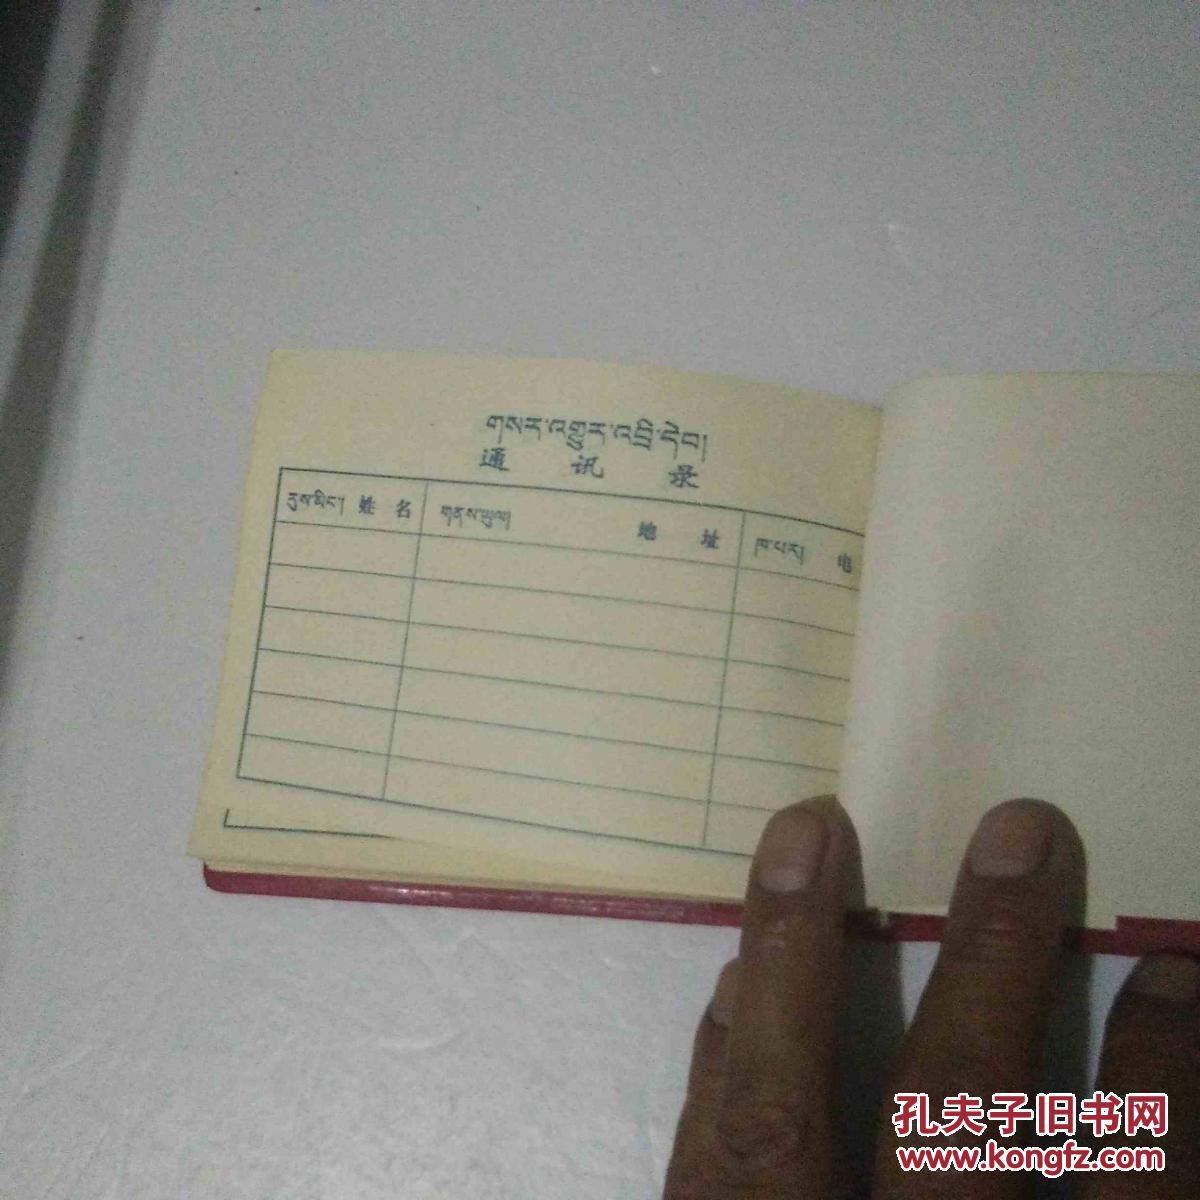 གསར་འགྱུར་འབྲི་དེབ།
通 讯 录
རུས་མིང་། 姓 名 གནས་ཡུལ། 地 址 ཁ་པར། 电
孔夫子旧书网
www.kongfz.com